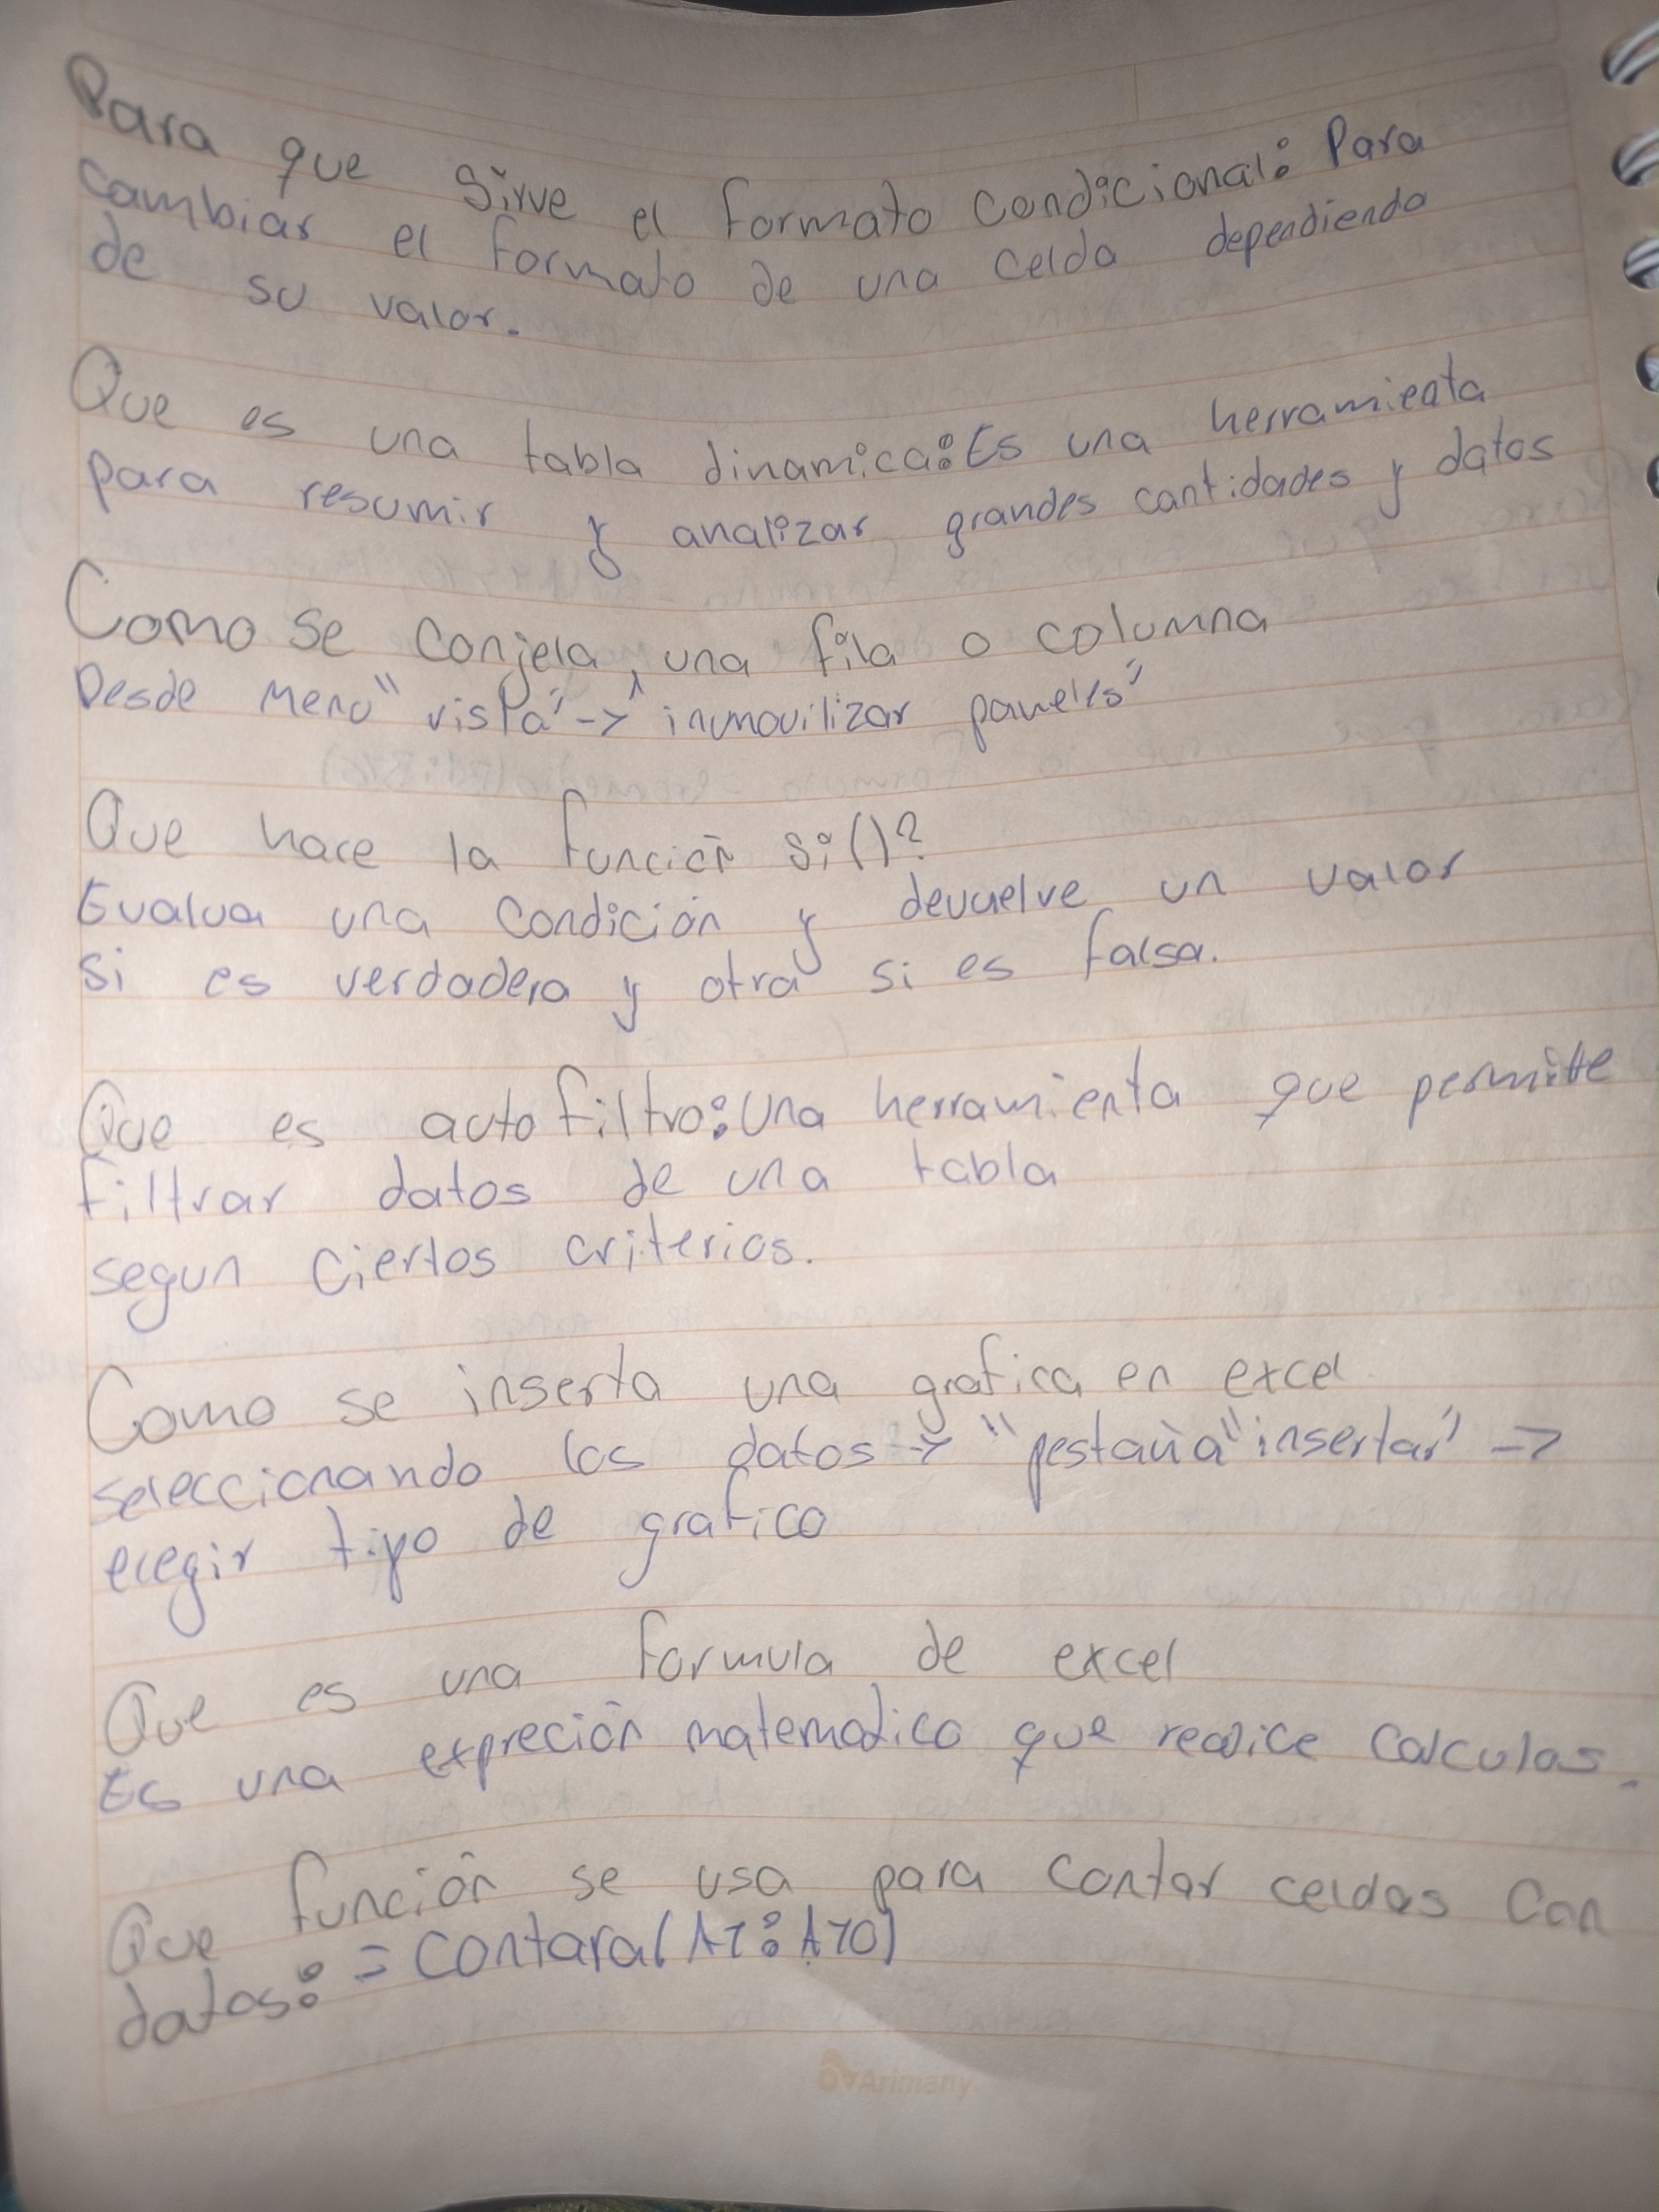 Para que sirve el formato condicional: Para
cambiar el formato de una celda dependiendo
de su valor.
Que es una tabla dinamica: Es una herramienta
para resumir y analizar grandes cantidades y datos
Como se conjela una fila o columna
Desde menu "vista" -> "inmovilizar paneles"
Que hace la función si()?
Evalua una condición y devuelve un valor
si es verdadera y otra si es falsa.
Que es auto filtro: Una herramienta que permite
filtrar datos de una tabla
segun ciertos criterios.
Como se inserta una grafica en excel
seleccionando los datos -> "pestaña "insertar" ->
elegir tipo de grafico
Que es una formula de excel
Es una expreción matematica que realice calculos.
Que función se usa para contar celdas con
datos: = contara(A1:A10)
Arimany